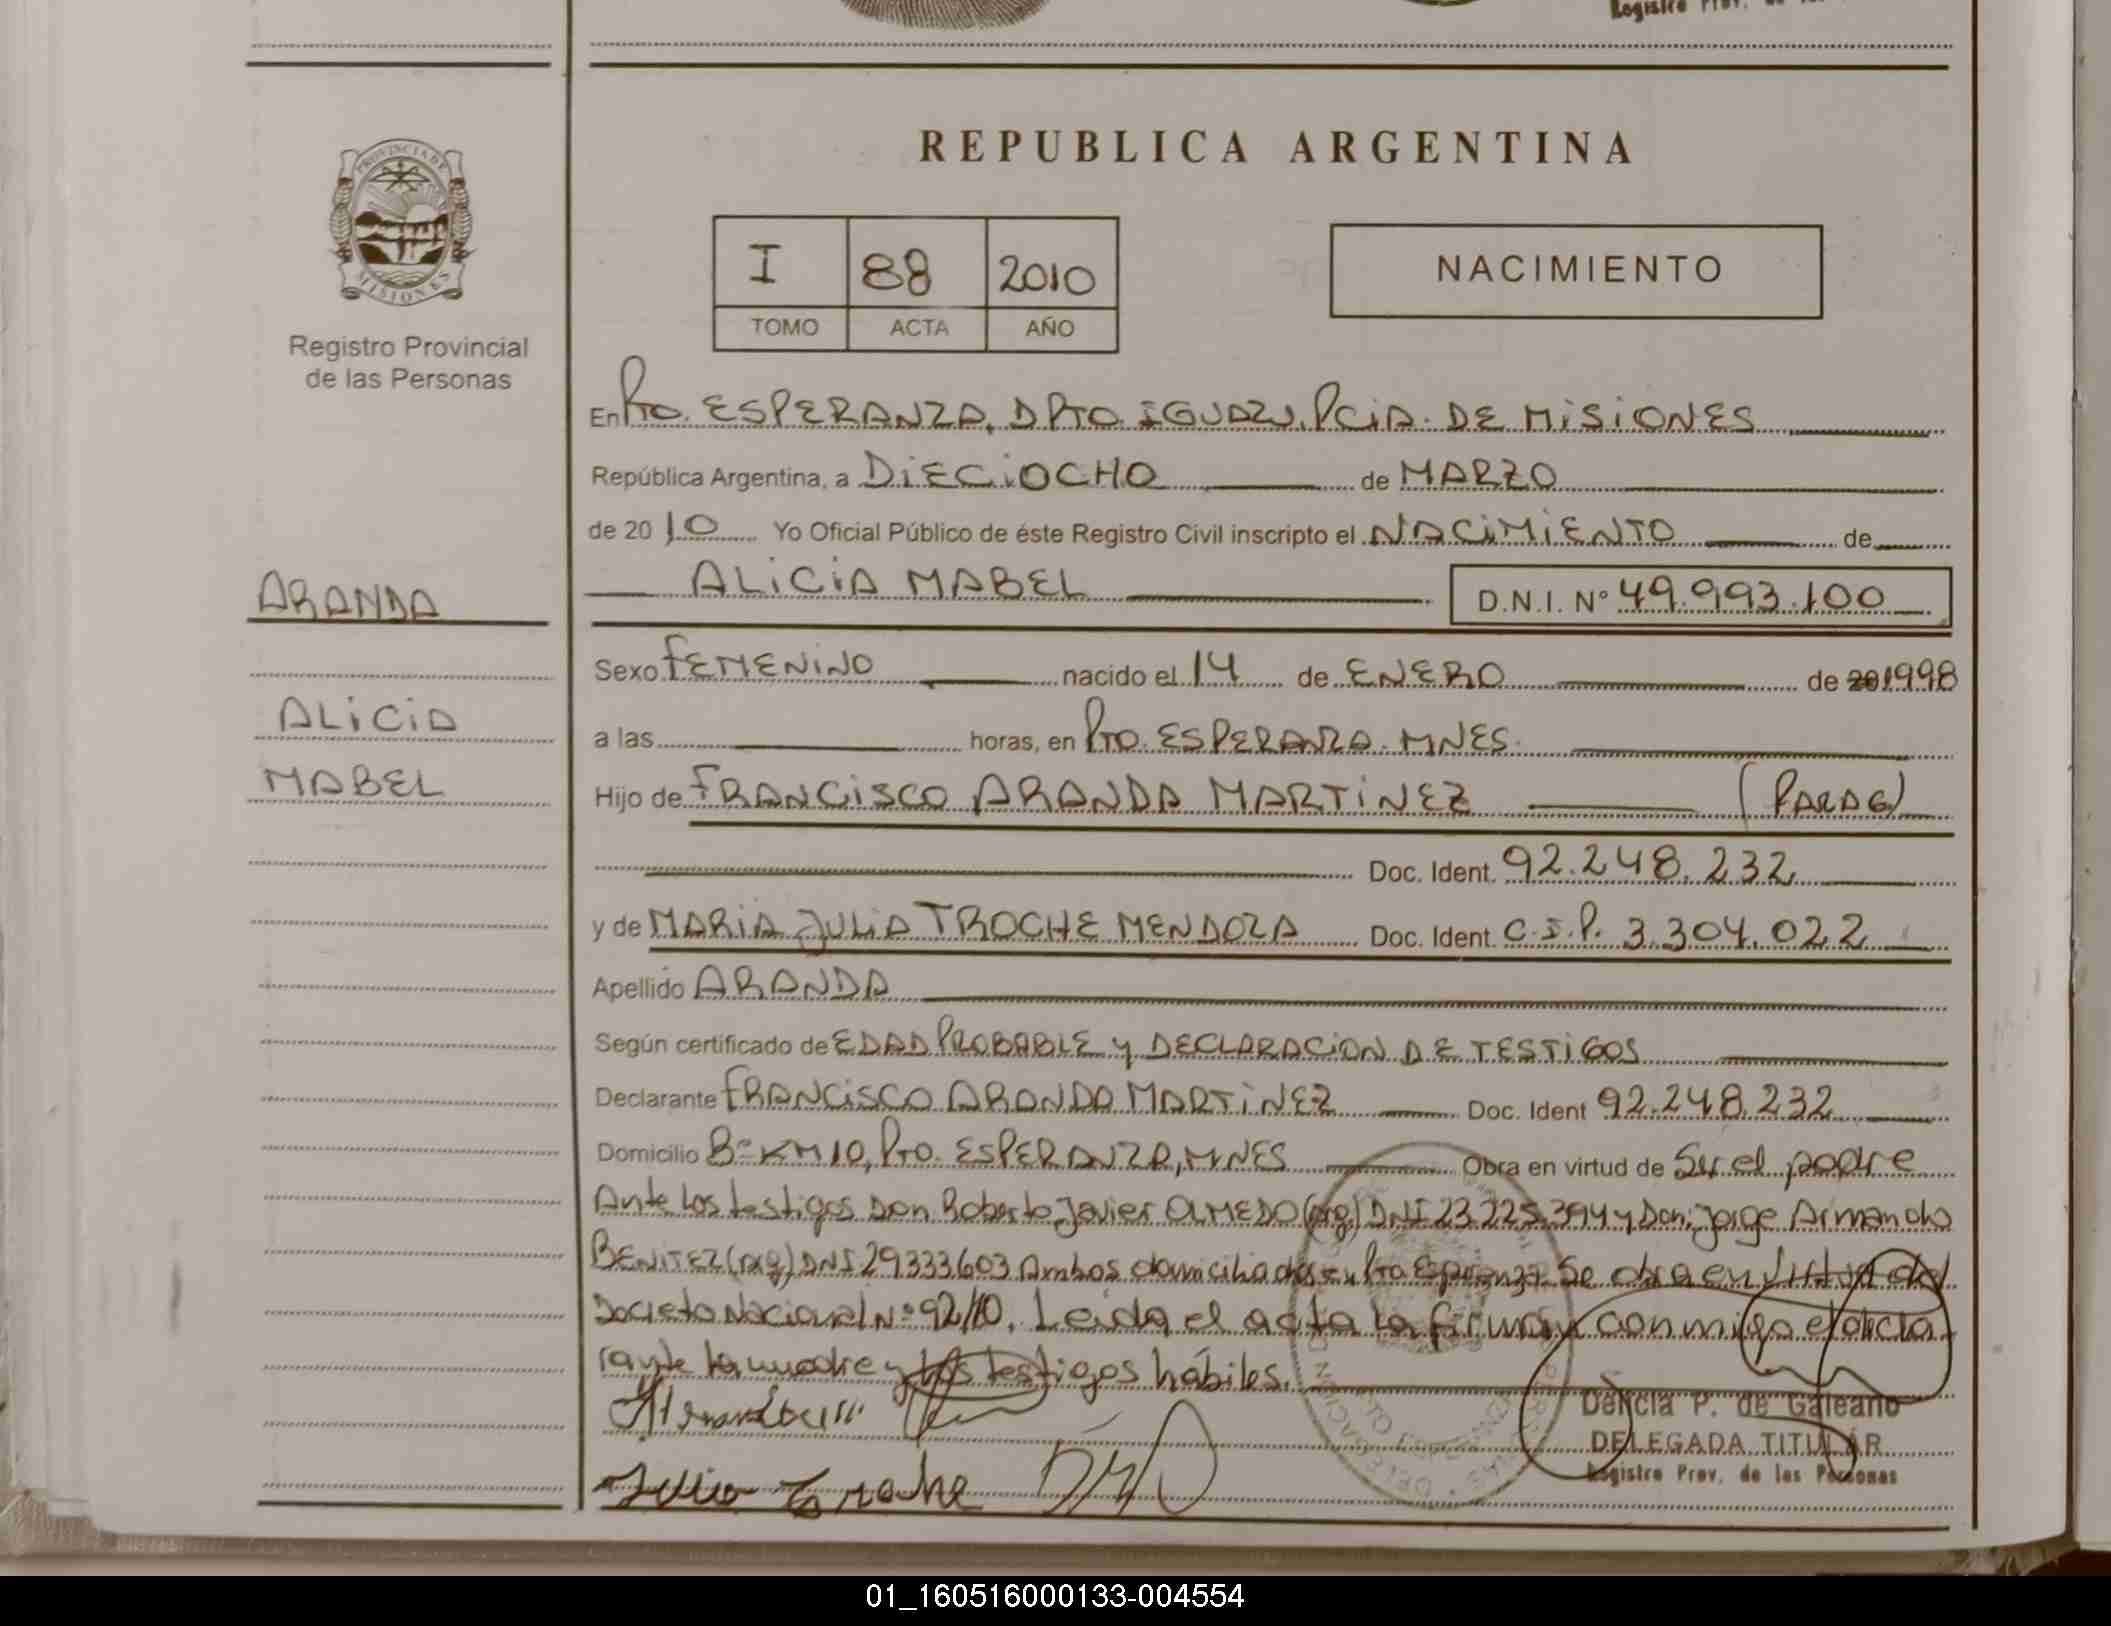 Registro Prov. de las
PROVINCIA DE
MISIONES
Registro Provincial
de las Personas
ARANDA
ALICIA
MABEL
REPUBLICA ARGENTINA
I 88 2010
TOMO ACTA AÑO
NACIMIENTO
En Pto. ESPERANZA, DPTO. IGUAZU, PCIA. DE MISIONES
República Argentina, a DIECIOCHO de MARZO
de 2010 Yo Oficial Público de éste Registro Civil inscripto el NACIMIENTO de
ALICIA MABEL D.N.I. Nº 49.993.100
Sexo FEMENINO nacido el 14 de ENERO de 1998
a las horas, en PTO. ESPERANZA. MNES.
Hijo de FRANCISCO ARANDA MARTINEZ (PARAG)
Doc. Ident. 92.248.232
y de MARIA JULIA TROCHE MENDOZA Doc. Ident. C.I.P. 3.304.022
Apellido ARANDA
Según certificado de EDAD PROBABLE y DECLARACION DE TESTIGOS
Declarante FRANCISCO ARANDA MARTINEZ Doc. Ident 92.248.232
Domicilio Bº KM 10, PTO. ESPERANZA, MNES Obra en virtud de Ser el padre
Ante los testigos Don Roberto Javier OLMEDO (arg) DNI 23.225.394 y Don Jorge Armando
BENITEZ (arg) DNI 29333603 Ambos domiciliados en Pto Esperanza. Se obra en virtud del
Decreto Nacional Nº 92/10. Leida el acta la firman conmigo el decla
rante la madre y los testigos hábiles.
Julia Troche
Delicia P. de Galeano
DELEGADA TITULAR
Registro Prov. de las Personas
01_160516000133-004554